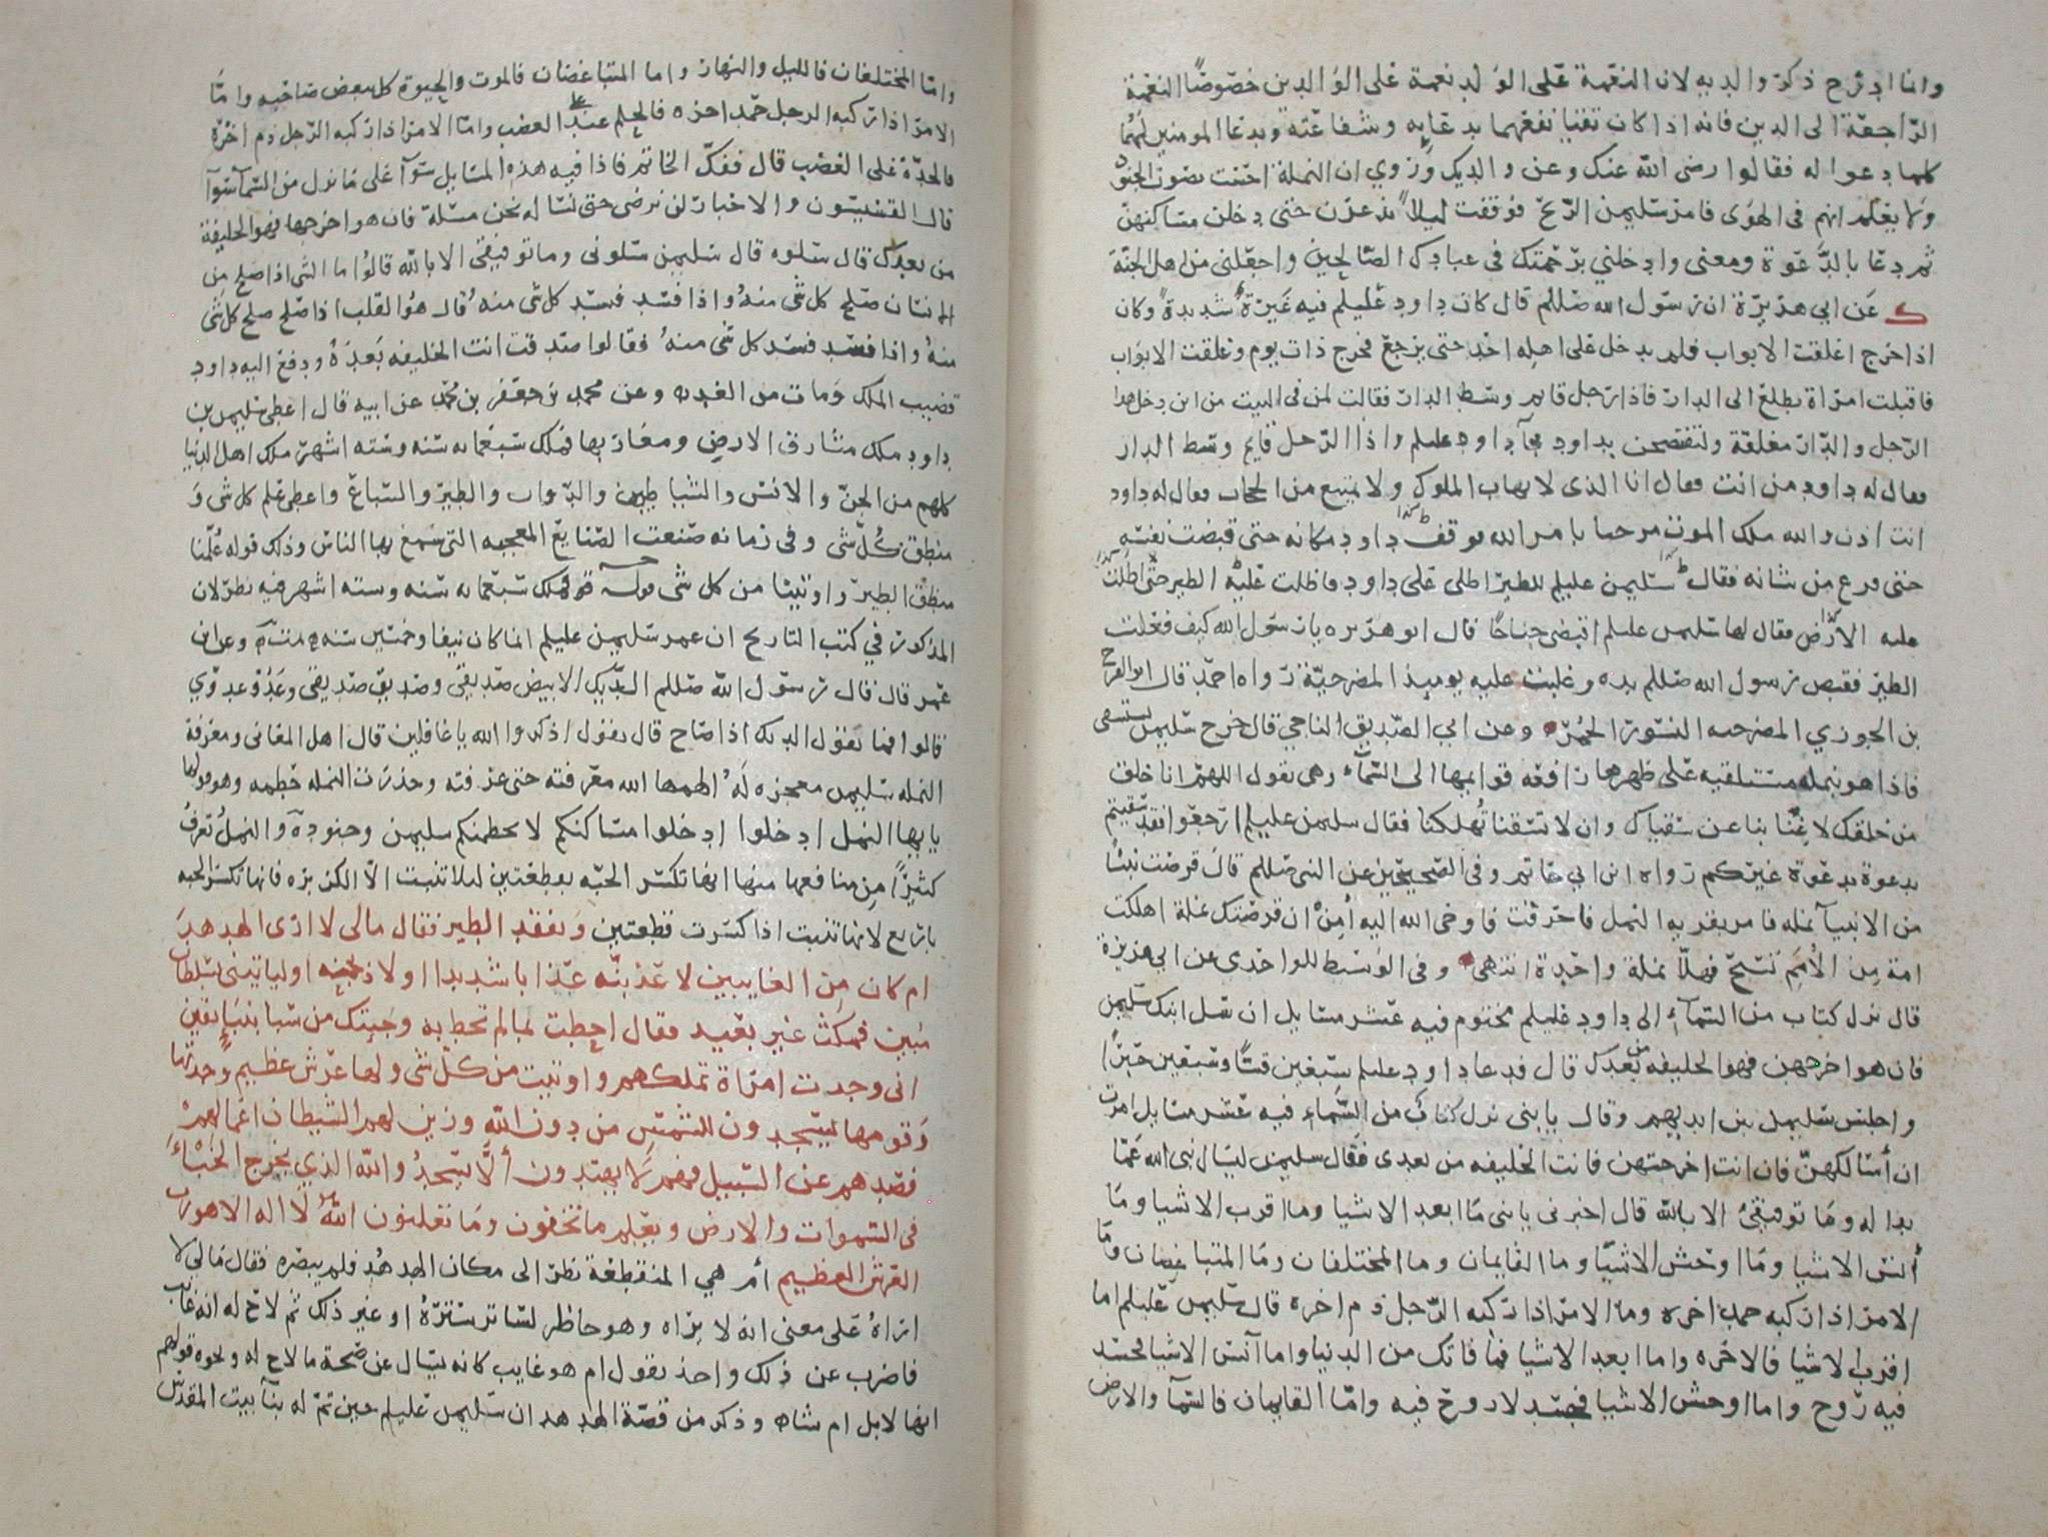 وانما ادرج ذكر والديه لان النعمة على الولد نعمة على الوالدين خصوصًا النعمة
الراجعة الى الدين فانه اذا كان تقيا نفعهما بدعائه وشفاعته وبدعا المومنين لهما
كلما دعوا له فقالوا رضى الله عنك وعن والديك وروي ان النملة احست بصوت الجنود
ولا يعلم انهم فى الهوى فامر سليمن الريح فوقفت ليلا يذعرن حتى دخلن مساكنهن
ثم دعا بالدعوة ومعنى وادخلني برحمتك في عبادك الصالحين واجعلنى من اهل الجنة
ك عن ابي هريرة ان رسول الله صللم قال كان داود عليلم فيه غيرة شديدة وكان
اذا خرج اغلقت الابواب فلم يدخل على اهله احد حتى يرجع فخرج ذات يوم وغلقت الابواب
فاقبلت امراة تطلع الى الدار فاذا رجل قايم وسط الدار فقالت لمن فى البيت من اين دخل هذا
الرجل والدار مغلقة ولتفتضحن بداود فجآ داود عليلم واذا الرجل قايم وسط الدار
فقال له داود من انت فقال انا الذى لا يهاب الملوك ولا يمتنع من الحجاب فقال له داود
انت اذن والله ملك الموت مرحبا بامر الله فوقف داود مكانه حتى قبضت نفسه
حتى فرغ من شانه فقال سليمن عليلم للطير اظلى على داود فاظلت عليه الطير حتى اظلمت
عليه الارض فقال لها سليمن عليلم اقبضى جناحًا قال ابو هريره يا رسول الله كيف فعلت
الطير فقبض رسول الله صللم يده وغلبت عليه يوميذ المضرحيّة رواه احمد قال ابو الفرج
بن الجوزي المضرحيه النسور الحمر وعن ابي الصديق الناجي قال خرج سليمن يستسقى
فاذا هو بنملة مستلقيه على ظهرها رافعه قوايمها الى السمآء وهى تقول اللهم انا خلق
من خلقك لا غنًا بنا عن سقياك وان لا تسقنا تُهلكنا فقال سليمن عليلم ارجعوا فقد سقيتم
بدعوة بدعوة غيركم رواه ابن ابي حاتم وفى الصحيحين عن النبى صللم قال قرصت نبيًا
من الانبيآ نمله فامر بقريه النمل فاحرقت فاوحى الله اليه أمِنْ ان قرصتك نملة اهلكت
امة من الأمم تسبّح فهلّا نملة واحدة انتهى وفى الوسيط للواحدى عن ابى هريرة
قال نزل كتاب من السمآء الى داود عليلم مختوم فيه عشر مسايل ان سل ابنك سليمن
فان هو اخرجهن فهو الخليفه من بعدك قال فدعا داود عليلم سبعين قسًا وسبعين حبرًا
واجلس سليمن بين ايديهم وقال يا بنى نزل كتاب من السماء فيه عشر مسايل امرت
ان أسالكهنّ فان انت اخرجتهن فانت الخليفه من بعدى فقال سليمن ليسال نبى الله عمّا
بدا له وما توفيقى الا بالله قال اخبرنى يا بنى ما ابعد الاشيا وما اقرب الاشيا وما
أنس الاشيا وما اوحش الاشيا وما القايمان وما المختلفان وما المتباغضان وما
الامر اذا ركبه حمد اخره وما الامر اذا ركبه الرجل ذم اخره قال سليمن عليلم اما
اقرب الاشيا فالاخره واما ابعد الاشيا فما فاتك من الدنيا واما آنس الاشيا فجسد
فيه روح واما اوحش الاشيا فجسد لا روح فيه وامّا القايمان فالسمآ والارض
وامّا المختلفان فالليل والنهار واما المتباغضان فالموت والحيوة كل يبغض صاحبه وامّا
الامر اذا ركبه الرجل حمد اخره فالحلم عند الغضب وامّا الامر اذا ركبه الرجل ذم اخره
فالحدّة على الغضب قال ففكّ الخاتم فاذا فيه هذه المسايل سوآ على ما نزل من السمآ سوآ
قال القسيسون والاحبار لن نرضى حتى نساله نحن مسلة فان هو اخرجها فهو الخليفة
من بعدك قال سلوه قال سليمن سلونى وما توفيقى الا بالله قالوا ما الشى اذا صلح من
الانسان صلح كل شى منه واذا فسد فسد كل شى منه قال هو القلب اذا صلح صلح كل شى
منه واذا فسد فسد كل شى منه فقالوا صدقت انت الخليفه بعده ودفع اليه داود
قضيب الملك ومات من الغد وعن محمد بن جعفر بن محمد عن ابيه قال اعطى سليمن بن
داود ملك مشارق الارض ومغاربها فملك سبعمايه سنه وسته اشهر ملك اهل الدنيا
كلهم من الجنّ والانس والشياطين والدواب والطير والسباع واعطى علم كل شى و
منطق كُلّ شى وفى زمانه صنعت الصنايع المعجبه التى سمع بها الناس وذلك قوله عُلّمنا
منطق الطير واوتينا من كل شى قوله فملك سبعمايه سنه وسته اشهر فيه نظر لان
المذكور في كتب التاريخ ان عمر سليمن عليلم انما كان نيفا وخمسين سنه وعن ابن
عمر قال قال رسول الله صللم الديك الابيض صديقى وصديق صديقى وعدو عدوّي
قالوا فما يقول الديك اذا صاح قال يقول اذكروا الله يا غافلين قال اهل المعانى ومعرفة
النمله سليمن معجزه لهُ الهمها الله معرفته حتى عرفته وحذرت النمله حطمه وهو قولها
يا يها النمل ادخلوا ادخلوا مساكنكم لا يحطمنكم سليمن وجنوده والنملُ تعرفُ
كثيرًا من منافعها منها انها تكسر الحبّه بقطعتين ليلا تنبت الّا الكزبره فانها تكسر الحبه
باربع لانها تنبت اذا كسرت قطعتين وتفقد الطير فقال مالى لا ارى الهدهد
ام كان من الغايبين لاعذبنّه عذابا شديدا او لاذبحنه او لياتينى بسلطان
مبين فمكث غير بعيد فقال احطت بما لم تحط به وجيتك من سبا بنبا يقين
انى وجدت امراة تملكهم واوتيت من كلّ شى ولها عرش عظيم وجدتها
وقومها يسجدون للشمس من دون الله وزين لهم الشيطان اعمالهم
فصدهم عن السبيل فهم لا يهتدون ألّا يسجدُوا لله الذي يخرج الخبْاءَ
فى السموات والارض ويعلم ما تخفون وما تعلنون اللهُ لا اله الا هو رب
العرش العظيم أم هي المنقطعة نظر الى مكان الهدهد فلم يبصره فقال مالى لا
اراهُ على معنى انه لا يراه وهو حاظر لساتر سترهُ او غير ذلك ثم لاح له انه غاب
فاضرب عن ذلك واخذ يقول ام هو غايب كانه يسال عن صحة ما لاح له ونحوه قولهم
انها لابل ام شاه وذكر من قصّة الهدهد ان سليمن عليلم حين تمّ له بنآ بيت المقدس